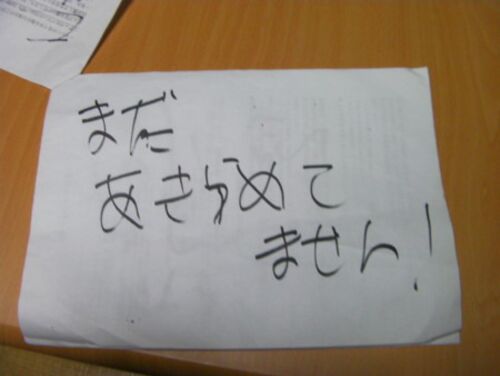 まだ
あきらめて
ません!